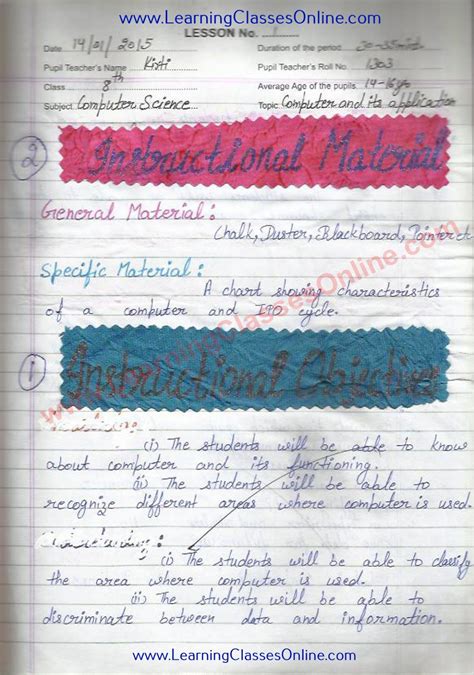 www.LearningClassesOnline.com
LESSON No. 1
Date 14/01/2015 Duration of the period 30-35mint
Pupil Teacher's Name Kirti Pupil Teacher's Roll No. 1303
Class 8th Average Age of the pupils 14-16yrs
Subject Computer Science Topic Computer and its application
2 Instructional Material
General Material:
Chalk, Duster, Blackboard, Pointer etc
Specific Material:
A chart showing characteristics
of a computer and IPO cycle.
1 Instructional Objectives
(i) The students will be able to know
about computer and its functioning.
(ii) The students will be able to
recognize different areas where computer is used.
(i) The students will be able to classify
the area where computer is used.
(ii) The students will be able to
discriminate between data and information.
www.LearningClassesOnline.com
www.LearningClassesOnline.com